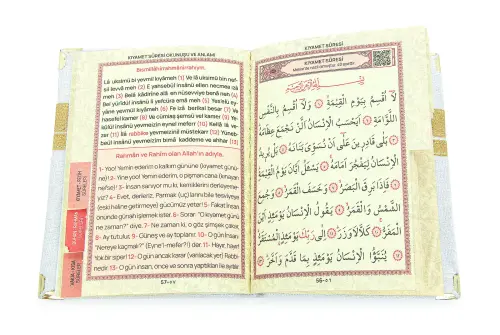 KIYAMET SÛRESİ OKUNUŞU VE ANLAMI
Bismillâhirrahmânirrahîym.
Lâ uksimü bi yevmil kıyâmeh (1) Ve lâ uksimü bin nef-
sil levvâmeh (2) E yahsebül insânü ellen necmea ızâ
meh (3) Belâ kâdirîne alâ en nüsevviye benâneh (4)
Bel yürîdül insânü li yefcüra emâmeh (5) Yes'elü ey-
yâne yevmül kıyâmeh (6) Fe izâ berikal besar (7) Ve
hasefel kamer (8) Ve cümiaş şemsü vel kamer (9) Ye
kûlül insânü yevmeizin eynel mefer (10) Kellâ lâ ve-
zer (11) ilâ rabbike yevmeizinil müstekarr (12) Yüneb-
beül insânü yevmeizin bimâ kaddeme ve ahhar (13)
Rahmân ve Rahîm olan Allah'ın adıyla.
1- Yoo! Yemin ederim o kalkım gününe (kıyamet günü-
ne)! 2- Yine yoo! Yemin ederim, o pişman cana (kınayan
nefse)! 3- İnsan sanıyor mu ki, kemiklerini derleyeme-
yiz? 4- Evet, derleriz, Parmak (uç)larını bile tesviyeye
(eski haline getirmeye) gücümüz yeter! 5- Fakat insan,
önünde günah işlemek ister. 6- Sorar: "O kıyamet günü
ne zaman?" diye. 7- Ne zaman ki, o göz şimşek çakar,
8- Ay tutulur, 9- Güneş ve ay toplanır: 10- O gün insan,
"Nereye kaçmalı?" (Eyne'l-mefer?) der. 11- Hayır, hayır!
Yok bir siper! 12- O gün ancak karar (varılacak yer) Rabbi-
nedir. 13- O gün insan, önce ve sonra yaptıkları ile ayıtılır.
57
KIYAMET SÛRESİ
KIYAMET SÛRESİ
لَا اُقْسِمُ بِيَوْمِ الْقِيٰمَةِ ۝ وَلَا اُقْسِمُ بِالنَّفْسِ
اللَّوَّامَةِ ۝ اَيَحْسَبُ الْاِنْسَانُ اَلَّنْ نَجْمَعَ عِظَامَهُ
۝ بَلٰى قَادِرِينَ عَلٰى اَنْ نُسَوِّىَ بَنَانَهُ ۝ بَلْ يُرِيدُ
الْاِنْسَانُ لِيَفْجُرَ اَمَامَهُ ۝ يَسْـَٔلُ اَيَّانَ يَوْمُ الْقِيٰمَةِ
۝ فَاِذَا بَرِقَ الْبَصَرُ ۝ وَخَسَفَ الْقَمَرُ ۝ وَجُمِعَ
الشَّمْسُ وَالْقَمَرُ ۝ يَقُولُ الْاِنْسَانُ يَوْمَئِذٍ اَيْنَ
الْمَفَرُّ ۝ كَلَّا لَا وَزَرَ ۝ اِلٰى رَبِّكَ يَوْمَئِذٍ الْمُسْتَقَرُّ
۝ يُنَبَّؤُا الْاِنْسَانُ يَوْمَئِذٍ بِمَا قَدَّمَ وَاَخَّرَ ۝
56